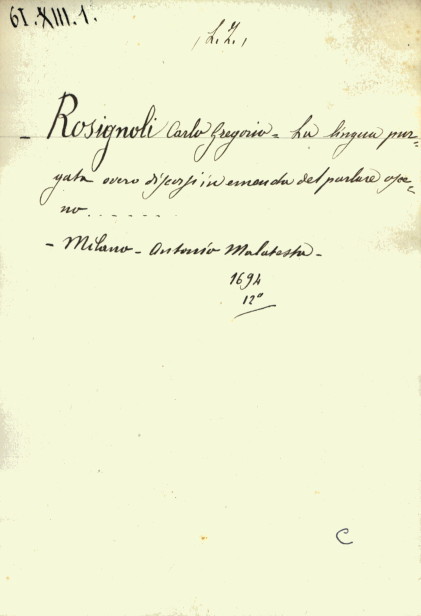 61.XIII.1.
(L.L.)
- Rosignoli Carlo Gregorio = La lingua pur-
gata overo discorsi in emenda del parlare osce=
no . . . . . .
- Milano - Antonio Malatesta -
1694
12°
C